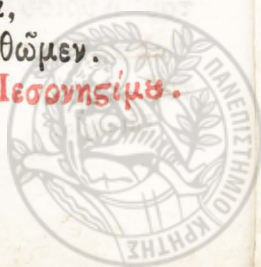 θῶμεν.
Μεσονηϛίμȣ.
ΠΑΝΕΠΙΣΤΗΜΙΟ ΚΡΗΤΗΣ